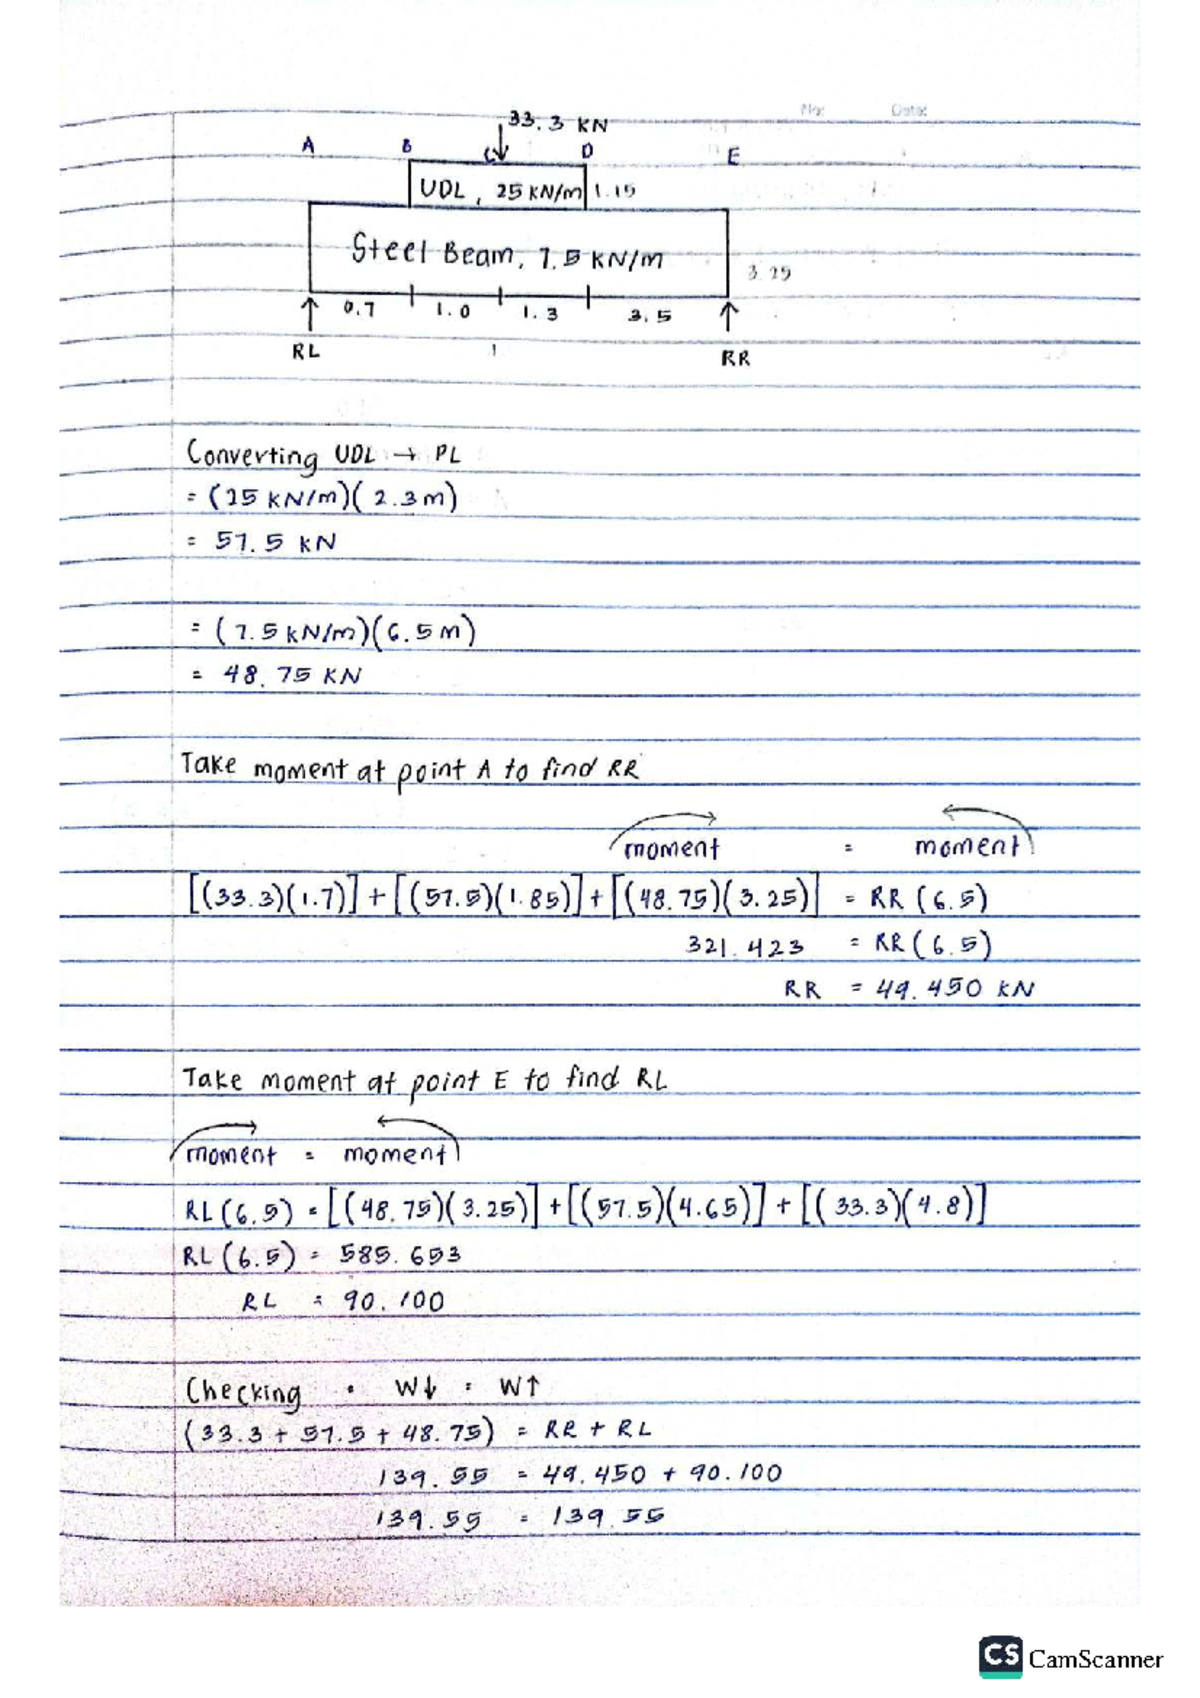 No: Date:
33.3 KN
A B C D E
UDL, 25 KN/m 1.15
Steel Beam, 7.5 KN/m
3.25
0.7 1.0 1.3 3.5
RL RR
Converting UDL → PL
= (25 KN/m)(2.3m)
= 57.5 KN
= (7.5 KN/m)(6.5m)
= 48.75 KN
Take moment at point A to find RR
moment = moment
[(33.3)(1.7)] + [(57.5)(1.85)] + [(48.75)(3.25)] = RR (6.5)
321.423 = RR (6.5)
RR = 49.450 KN
Take moment at point E to find RL
moment = moment
RL (6.5) = [(48.75)(3.25)] + [(57.5)(4.65)] + [(33.3)(4.8)]
RL (6.5) = 585.653
RL = 90.100
Checking • W↓ = W↑
(33.3 + 57.5 + 48.75) = RR + RL
139.55 = 49.450 + 90.100
139.55 = 139.55
CS CamScanner